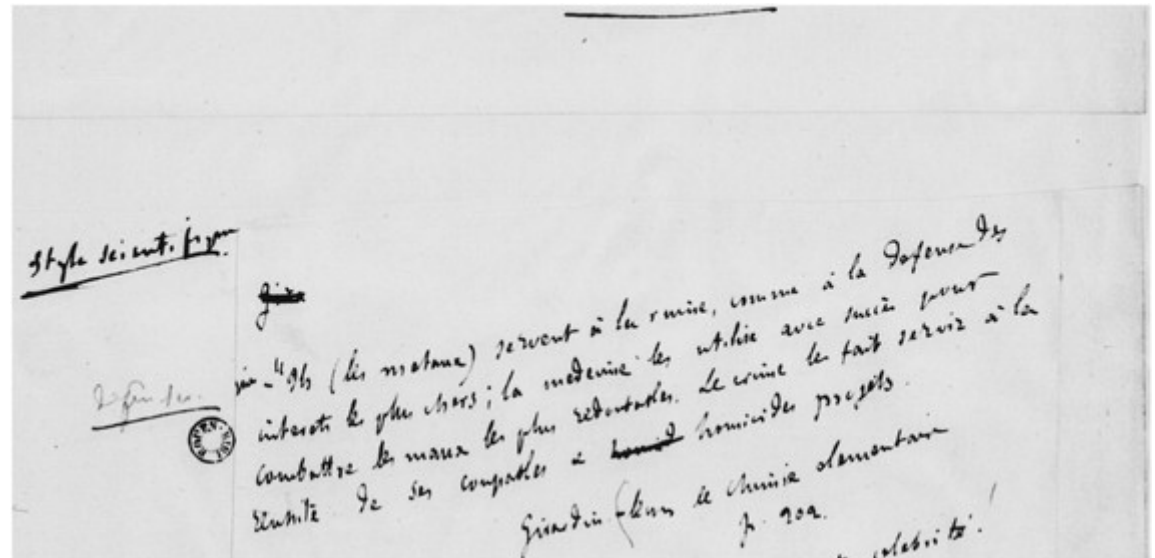 Style scientifique.
"Ils (les metaux) servent à la ruine, comme à la defense des
interets les plus chers ; la medecine les utilise avec succès pour
combattre les maux les plus redoutables. Le crime les fait servir à la
réussite de ses coupables & homicides projets.
Girardin - Leçons de Chimie elementaire
p. 202.
celebrité !